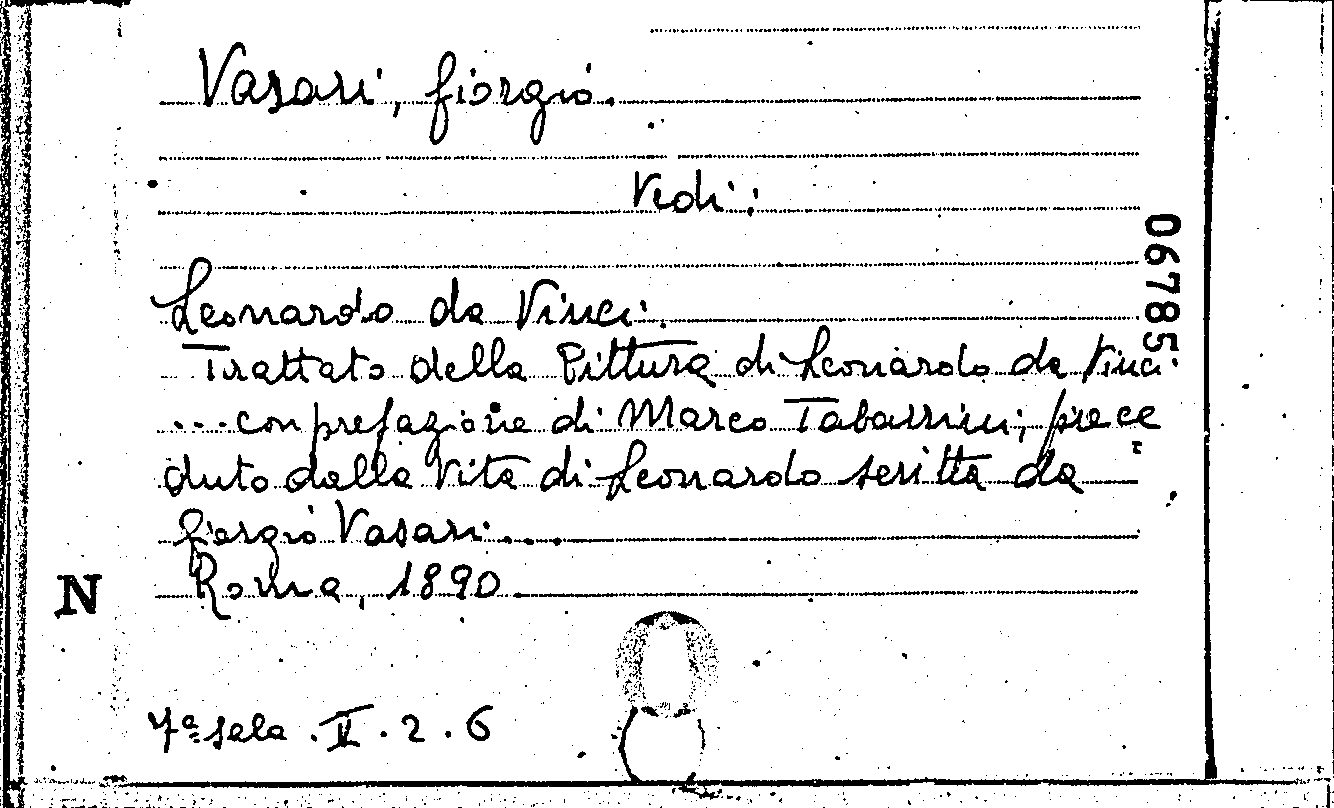 Vasari, Giorgio.
Vedi:
Leonardo da Vinci.
Trattato della Pittura di Leonardo da Vinci
... con prefazione di Marco Tabarrini; prece
duto dalla Vita di Leonardo scritta da
Giorgio Vasari....
Roma, 1890
7ª sala. II. 2. 6
N
06785